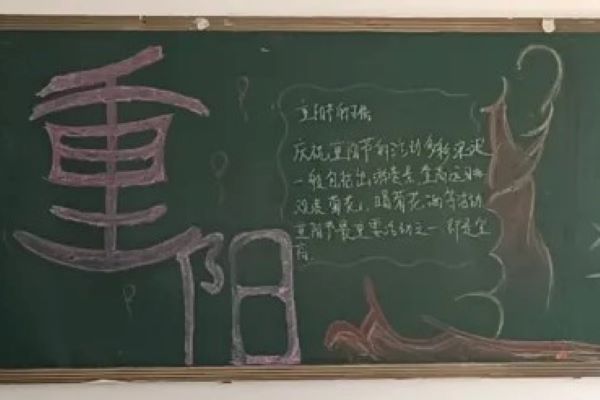 重阳
重阳节
庆祝重阳节的活动多彩浪漫
一般包括出游赏景、登高远眺
菊花、喝菊花酒等活动
重阳节最重要活动之一即是登
高.